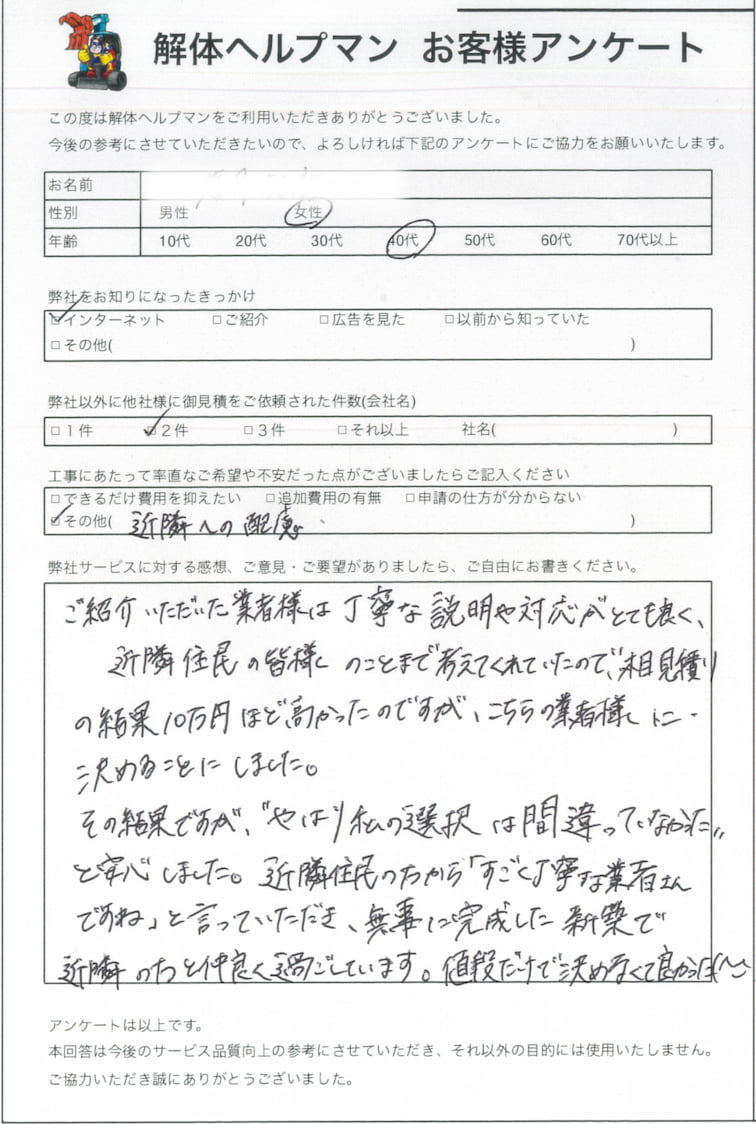 解体ヘルプマン お客様アンケート
この度は解体ヘルプマンをご利用いただきありがとうございました。
今後の参考にさせていただきたいので、よろしければ下記のアンケートにご協力をお願いいたします。
お名前
性別 男性 女性
年齢 10代 20代 30代 40代 50代 60代 70代以上
弊社をお知りになったきっかけ
☑インターネット □ご紹介 □広告を見た □以前から知っていた
□その他( )
弊社以外に他社様に御見積をご依頼された件数(会社名)
□1件 ☑2件 □3件 □それ以上 社名( )
工事にあたって率直なご希望や不安だった点がございましたらご記入ください
□できるだけ費用を抑えたい □追加費用の有無 □申請の仕方が分からない
☑その他( 近隣への配慮 )
弊社サービスに対する感想、ご意見・ご要望がありましたら、ご自由にお書きください。
ご紹介いただいた業者様は丁寧な説明や対応がとても良く、
近隣住民の皆様のことまで考えてくれていたので、相見積り
の結果10万円ほど高かったのですが、こちらの業者様に
決めることにしました。
その結果ですが、"やはり私の選択は間違っていなかった"
と安心しました。近隣住民の方から「すごく丁寧な業者さん
ですね」と言っていただき、無事に完成した新築で
近隣の方と仲良く過ごしています。値段だけで決めなくて良かった(^^)
アンケートは以上です。
本回答は今後のサービス品質向上の参考にさせていただき、それ以外の目的には使用いたしません。
ご協力いただき誠にありがとうございました。